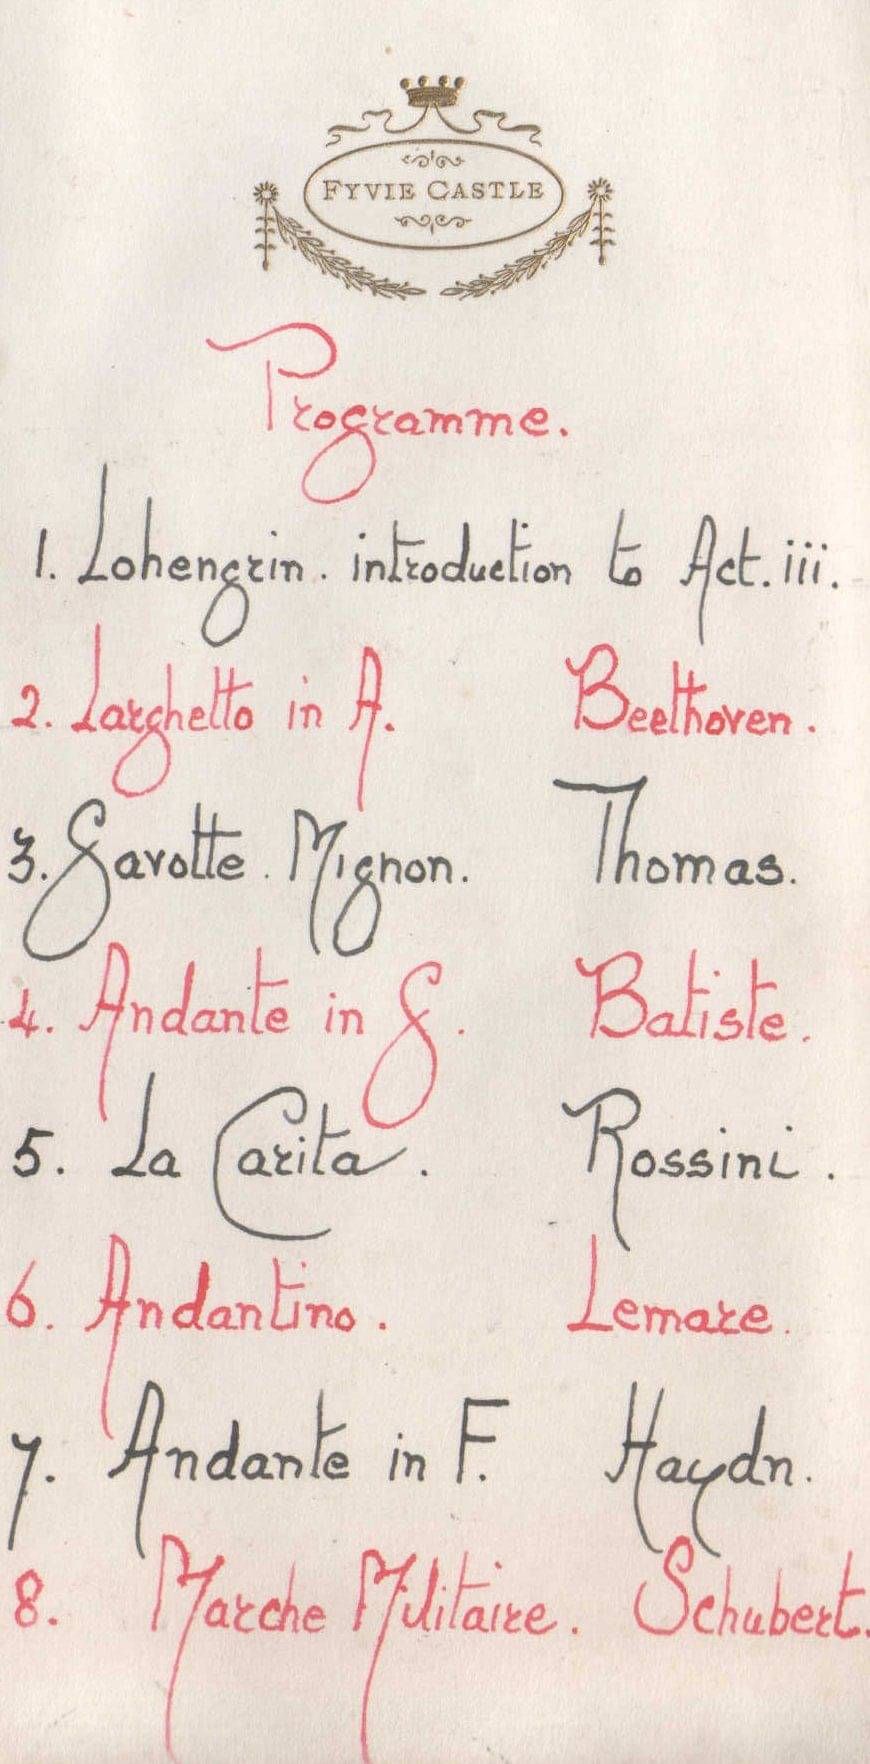 FYVIE CASTLE
Programme.
1. Lohengrin. introduction to Act. iii.
2. Larghetto in A. Beethoven.
3. Gavotte. Mignon. Thomas.
4. Andante in G. Batiste.
5. La Carita. Rossini.
6. Andantino. Lemare.
7. Andante in F. Haydn.
8. Marche Militaire. Schubert.